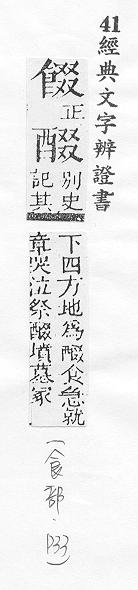 41 經典文字辨證書
餟 正
醊 別史
記其
下四方地為醊食急就
章哭泣祭醊墳墓冢
(食部.